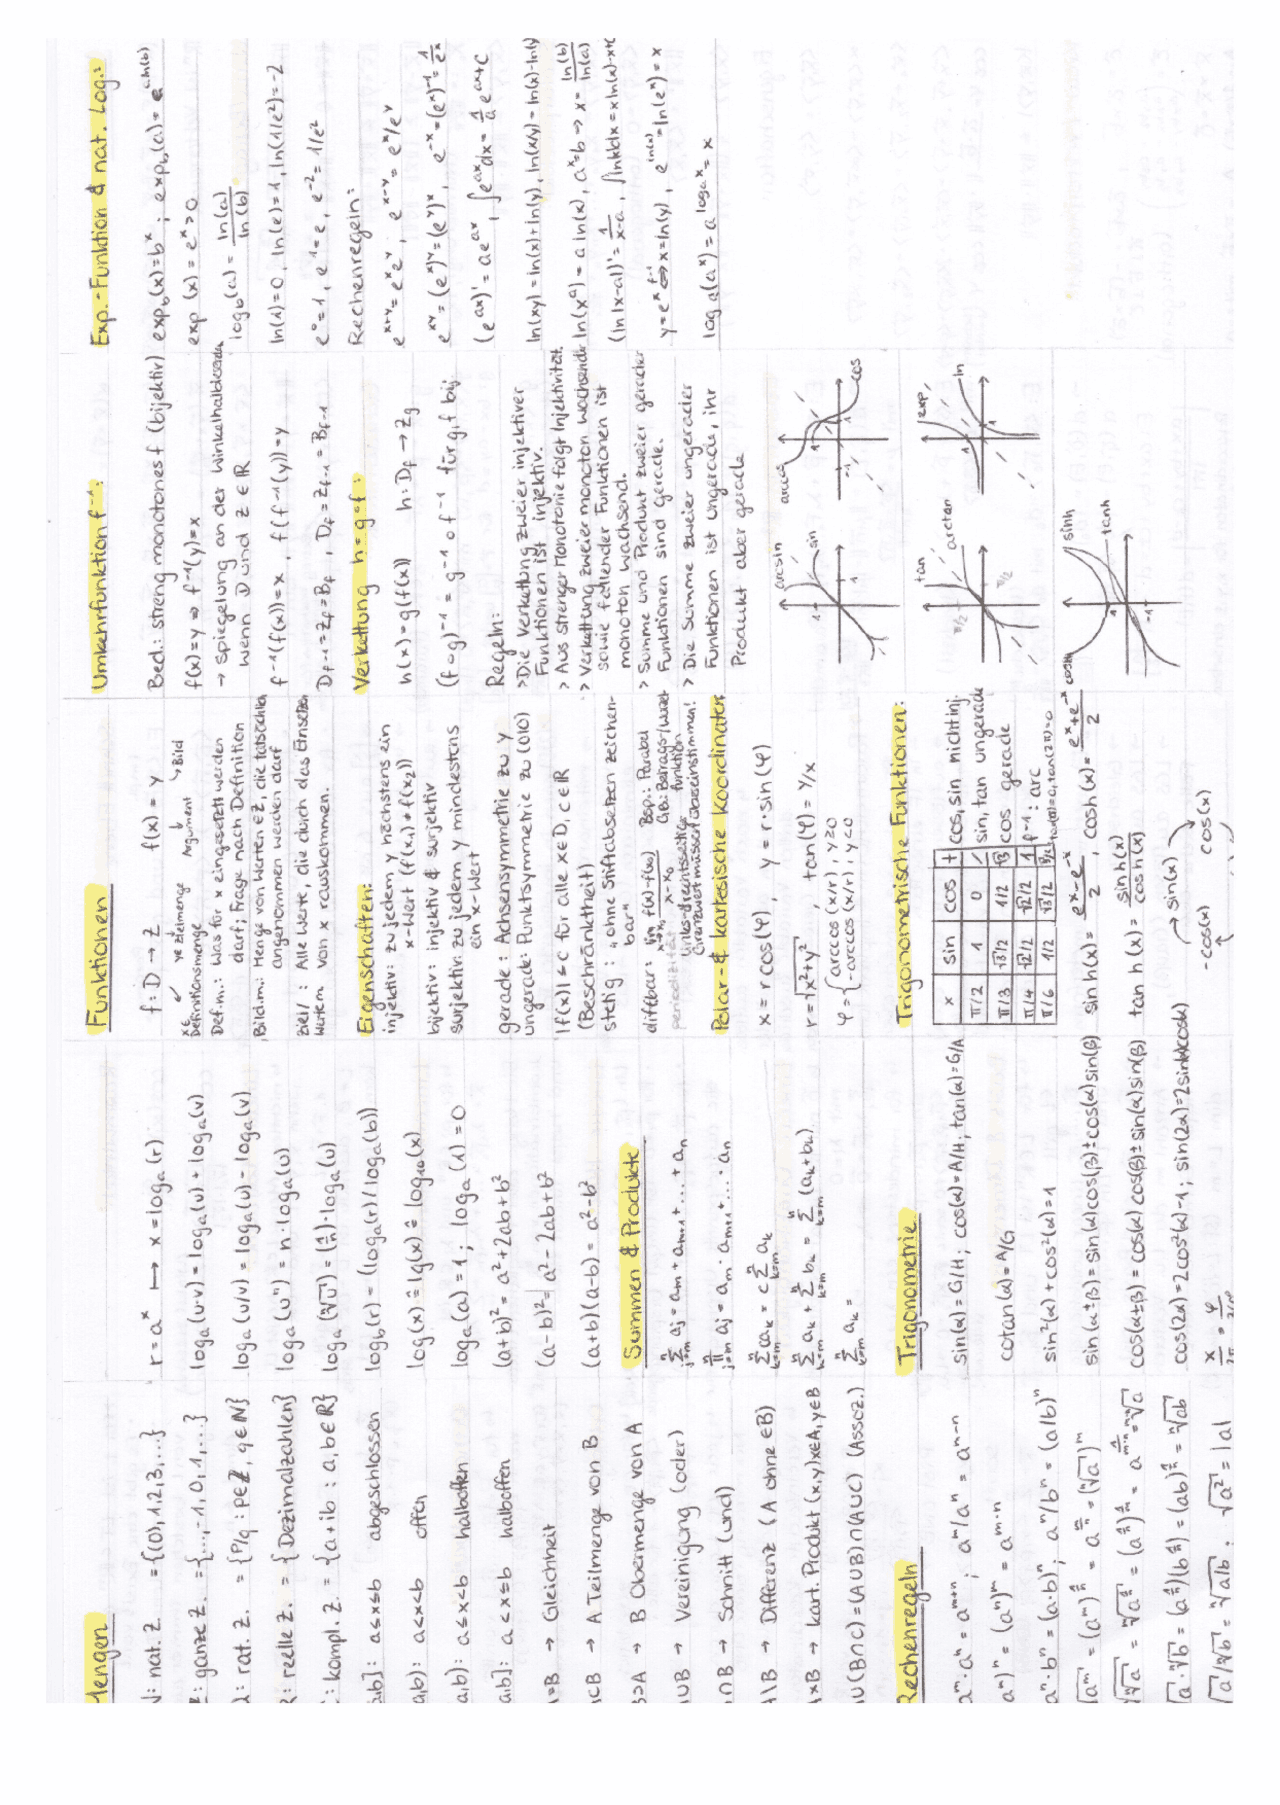 Mengen
N: nat. Z. = {(0), 1, 2, 3, ...}
Z: ganze Z. = {..., -1, 0, 1, ...}
Q: rat. Z. = {p/q : p∈Z, q∈N}
R: reelle Z. = {Dezimalzahlen}
C: kompl. Z. = {a+ib : a, b∈R}
[a,b]: a≤x≤b abgeschlossen
(a,b): a<x<b offen
[a,b): a≤x<b halboffen
(a,b]: a<x≤b halboffen
A=B → Gleichheit
A⊂B → A Teilmenge von B
B⊃A → B Obermenge von A
A∪B → Vereinigung (oder)
A∩B → Schnitt (und)
A\B → Differenz (A ohne ∈B)
A×B → kart. Produkt (x,y) x∈A, y∈B
A∪(B∩C) = (A∪B)∩(A∪C) (Assoz.)
Rechenregeln
a^m · a^n = a^(m+n) ; a^m/a^n = a^(m-n)
(a^m)^n = (a^n)^m = a^(m·n)
a^n · b^n = (a·b)^n ; a^n/b^n = (a/b)^n
n√a^m = (a^m)^(1/n) = a^(m/n) = (n√a)^m
m√n√a = m√a^(1/n) = (a^(1/n))^(1/m) = a^(1/(m·n)) = m·n√a
n√a · n√b = (a^(1/n))(b^(1/n)) = (ab)^(1/n) = n√ab
n√a / n√b = n√a/b . √a² = |a|
r = a^x ↦ x = log_a(r)
log_a(u·v) = log_a(u) + log_a(v)
log_a(u/v) = log_a(u) - log_a(v)
log_a(u^n) = n · log_a(u)
log_a(n√u) = (1/n) · log_a(u)
log_b(r) = (log_a(r) / log_a(b))
log(x) ≙ lg(x) ≙ log_10(x)
log_a(a) = 1 ; log_a(1) = 0
(a+b)² = a²+2ab+b²
(a-b)² = a²-2ab+b²
(a+b)(a-b) = a²-b²
Summen & Produkte
n∑j=m a_j = a_m + a_m+1 + ... + a_n
n∏j=m a_j = a_m · a_m+1 · ... · a_n
n∑k=m ca_k = c n∑k=m a_k
n∑k=m a_k + n∑k=m b_k = n∑k=m (a_k+b_k)
n∑k=m a_k =
Trigonometrie
sin(α)=G/H ; cos(α)=A/H ; tan(α)=G/A
cotan(α)=A/G
sin²(α)+cos²(α)=1
sin(α±β)=sin(α)cos(β)±cos(α)sin(β)
cos(α±β)=cos(α)cos(β)±sin(α)sin(β)
cos(2α)=2cos²(α)-1 ; sin(2α)=2sin(α)cos(α)
Funktionen
f: D → Z f(x) = y
x∈ Definitionsmenge y∈ Zielmenge Argument Bild
Def.m.: Was für x eingesetzt werden
darf ; Frage nach Definition
Bild.m.: Menge von Werten ∈Z, die tatsächlich
angenommen werden darf
Ziel / : Alle Werte, die durch das Einsetzen
Wertem. von x rauskommen.
Eigenschaften:
injektiv: zu jedem y höchstens ein
x-Wert (f(x₁)≠f(x₂))
bijektiv: injektiv & surjektiv
surjektiv: zu jedem y mindestens
ein x-Wert
gerade: Achsensymmetrie zu y
ungerade: Punktsymmetrie zu (0|0)
|f(x)| ≤ c für alle x∈D, c∈R
(Beschränktheit)
stetig: "ohne Stiftabsetzen zeichen-
bar"
diffbar: lim x→x₀ f(x)-f(x₀) / x-x₀ Bsp.: Parabel
G.B.: Betrags-/Wurzelfunktion
Periodizität Links-&rechtsseitige
Grenzwert müssen übereinstimmen!
Polar- & kartesische Koordinaten
x = r cos(φ) , y = r · sin(φ)
r = √x²+y² , tan(φ) = y/x
φ = { arccos(x/r), y≥0
-arccos(x/r), y<0
Trigonometrische Funktionen:
x sin cos t
π/2 1 0 /
π/3 √3/2 1/2 √3
π/4 √2/2 √2/2 1
π/6 1/2 √3/2 √3/3
cos, sin nicht inj.
sin, tan ungerade
cos gerade
f⁻¹ : arc
tan(0)=0, tan(2π)=0
sinh(x) = e^x-e^-x / 2 , cosh(x) = e^x+e^-x / 2
tanh(x) = sinh(x) / cosh(x)
sin(x)
-cos(x) cos(x)
Umkehrfunktion f⁻¹:
Bed.: streng monotones f (bijektiv)
f(x)=y ⇒ f⁻¹(y)=x
→ Spiegelung an der Winkelhalbierenden
wenn D und Z ∈ R
f⁻¹(f(x))=x , f(f⁻¹(y))=y
D_f⁻¹=Z_f=B_f , D_f=Z_f⁻¹=B_f⁻¹
Verkettung h=g∘f:
h(x)=g(f(x)) h: D_f → Z_g
(f∘g)⁻¹ = g⁻¹ ∘ f⁻¹ für g, f bij.
Regeln:
> Die Verkettung zweier injektiver
Funktionen ist injektiv.
> Aus strenger Monotonie folgt Injektivität.
> Verkettung zweier monoton wachsender
sowie fallender Funktionen ist
monoton wachsend.
> Summe und Produkt zweier gerader
Funktionen sind gerade.
> Die Summe zweier ungerader
Funktionen ist ungerade, ihr
Produkt aber gerade
arcsin sin 1 1
arccos cos 1 -1
tan arctan π/2 π/2
exp ln 1 1
cosh sinh tanh 1 -1
Exp.-Funktion & nat. Log.:
exp_b(x)=b^x ; exp_b(a)=e^(a ln(b))
exp(x) = e^x > 0
log_b(a) = ln(a) / ln(b)
ln(1)=0, ln(e)=1, ln(1/e²)=-2
e⁰=1, e¹=e, e⁻²=1/e²
Rechenregeln:
e^(x+y)=e^x e^y, e^(x-y)=e^x/e^y
e^(xy)=(e^x)^y=(e^y)^x, e^-x=(e^x)^-1=1/e^x
(e^ax)'=ae^ax , ∫e^ax dx = 1/a e^ax + C
ln(xy)=ln(x)+ln(y), ln(x/y)=ln(x)-ln(y)
ln(x^a)=a ln(x), a^x=b ⇒ x= ln(b)/ln(a)
(ln|x-a|)'= 1/x-a , ∫ln(x)dx=x ln(x)-x+C
y=e^x ⇔ x=ln(y), e^ln(x)=ln(e^x)=x
log_a(a^x)=a^(log_a x)=x